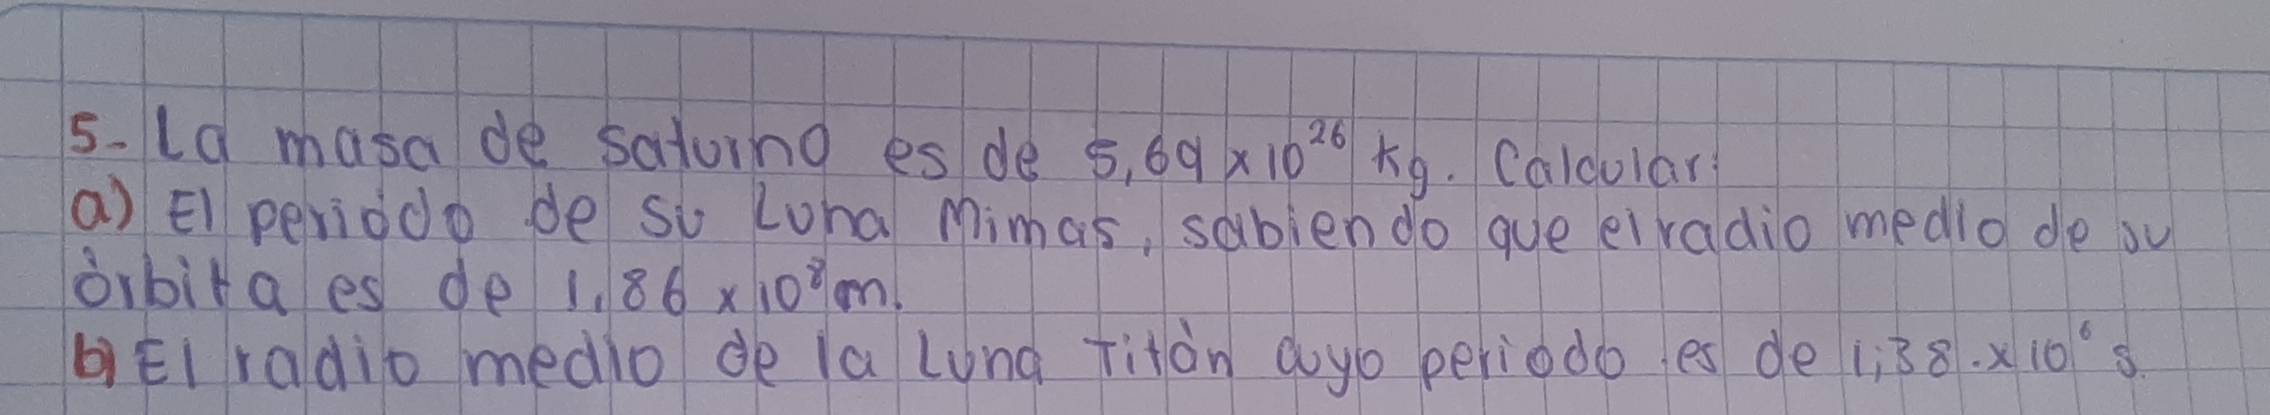 5- La masa de saturno es de 5,69 x 10²⁶ kg. Calcular:
a) El periodo de su Luna Mimas, sabiendo que el radio medio de su
órbita es de 1,86 x 10⁸ m.
b) El radio medio de la Luna Titán cuyo periodo es de 1,38.x10⁶ s.